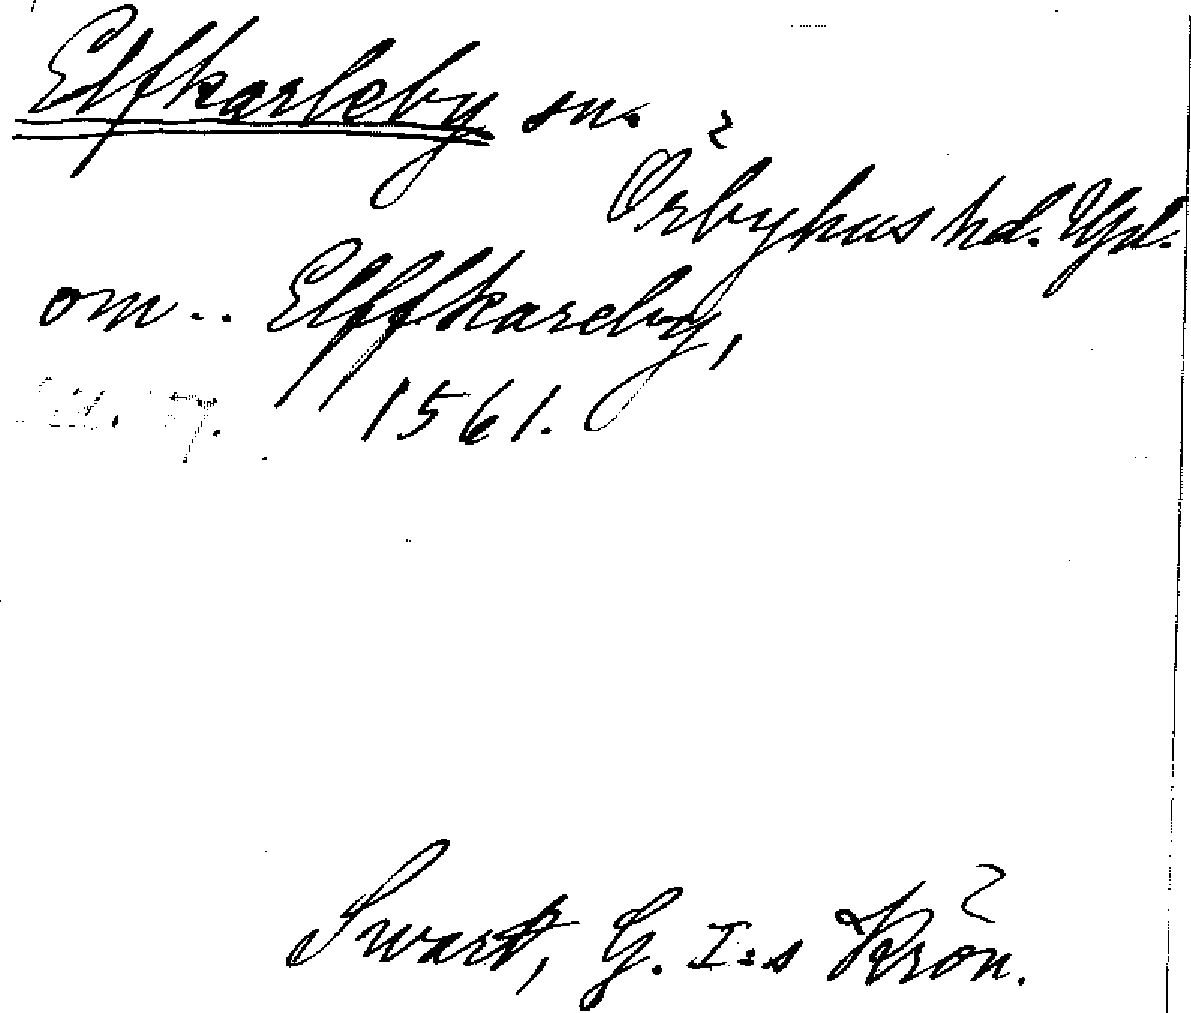 Elfkarleby sn.
Örbyhus hd. Upl.
om.. Elffkareby,
1561.
Swart, G. I:s Krön.